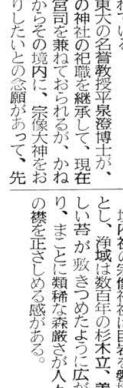 れている。
東大の名誉教授平泉澄博士が、
の神社の祀職を継承して、現在
宮司を兼ねておられるが、かね
からその境内に、宗像大神をお
りしたいとの念願があって、先
とし、浄域は数百年の杉木立、美
しい苔が敷きつめたように広が
り、まことに類稀な森厳さが人々
の襟を正さしめる感がある。